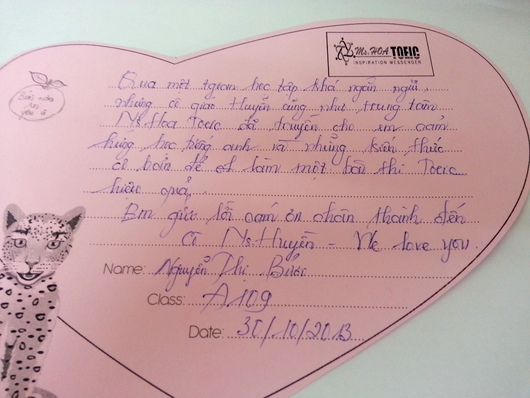 Ms.HOA TOEIC
INSPIRATION MESSENGER
Qua một tgian học tập khá ngắn ngủi,
nhưng cô giáo Huyền cũng như trung tâm
Ms Hoa Toeic đã truyền cho em cảm
hứng học tiếng anh và những kiến thức
cơ bản để làm một bài thi Toeic
hiệu quả.
Em gửi lời cảm ơn chân thành đến
Cô Ms.Huyền - We love you.
Name: Nguyễn Thị Bước
Class: A109
Date: 30/10/2013